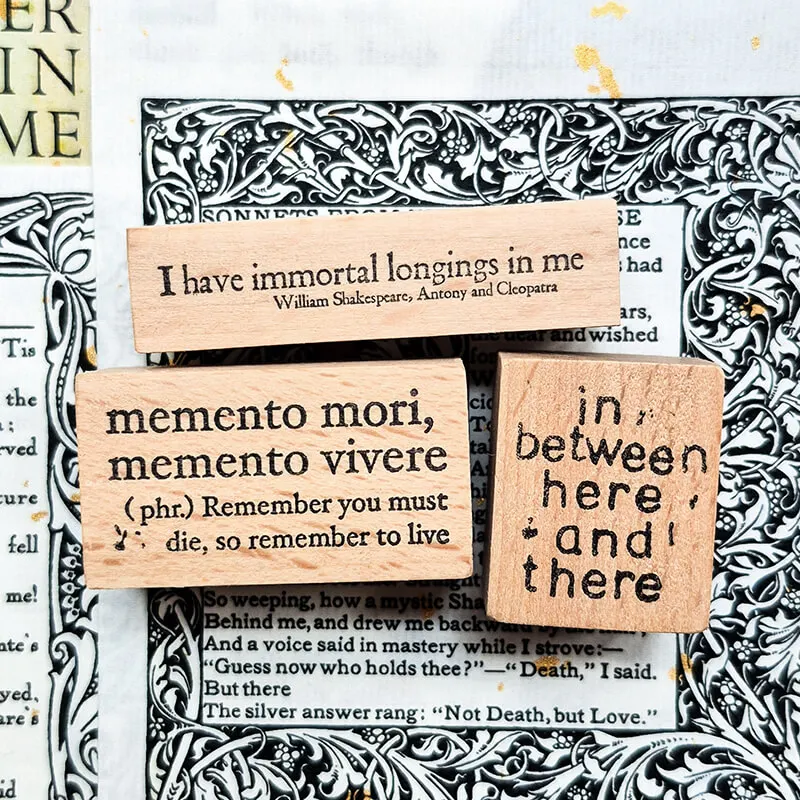 ER
IN
ME
Tis
the
rved
cure
fell
me!
nte's
yed,
are's
id
SONNETS FROM
SE
nce
s had
I have immortal longings in me
William Shakespeare, Antony and Cleopatra
ars,
the dear and wished
memento mori,
memento vivere
(phr.) Remember you must
die, so remember to live
in
between
here
and
there
So weeping, how a mystic Sha
Behind me, and drew me backward by the
And a voice said in mastery while I strove:—
“Guess now who holds thee?”—“Death,” I said.
But there
The silver answer rang: “Not Death, but Love.”